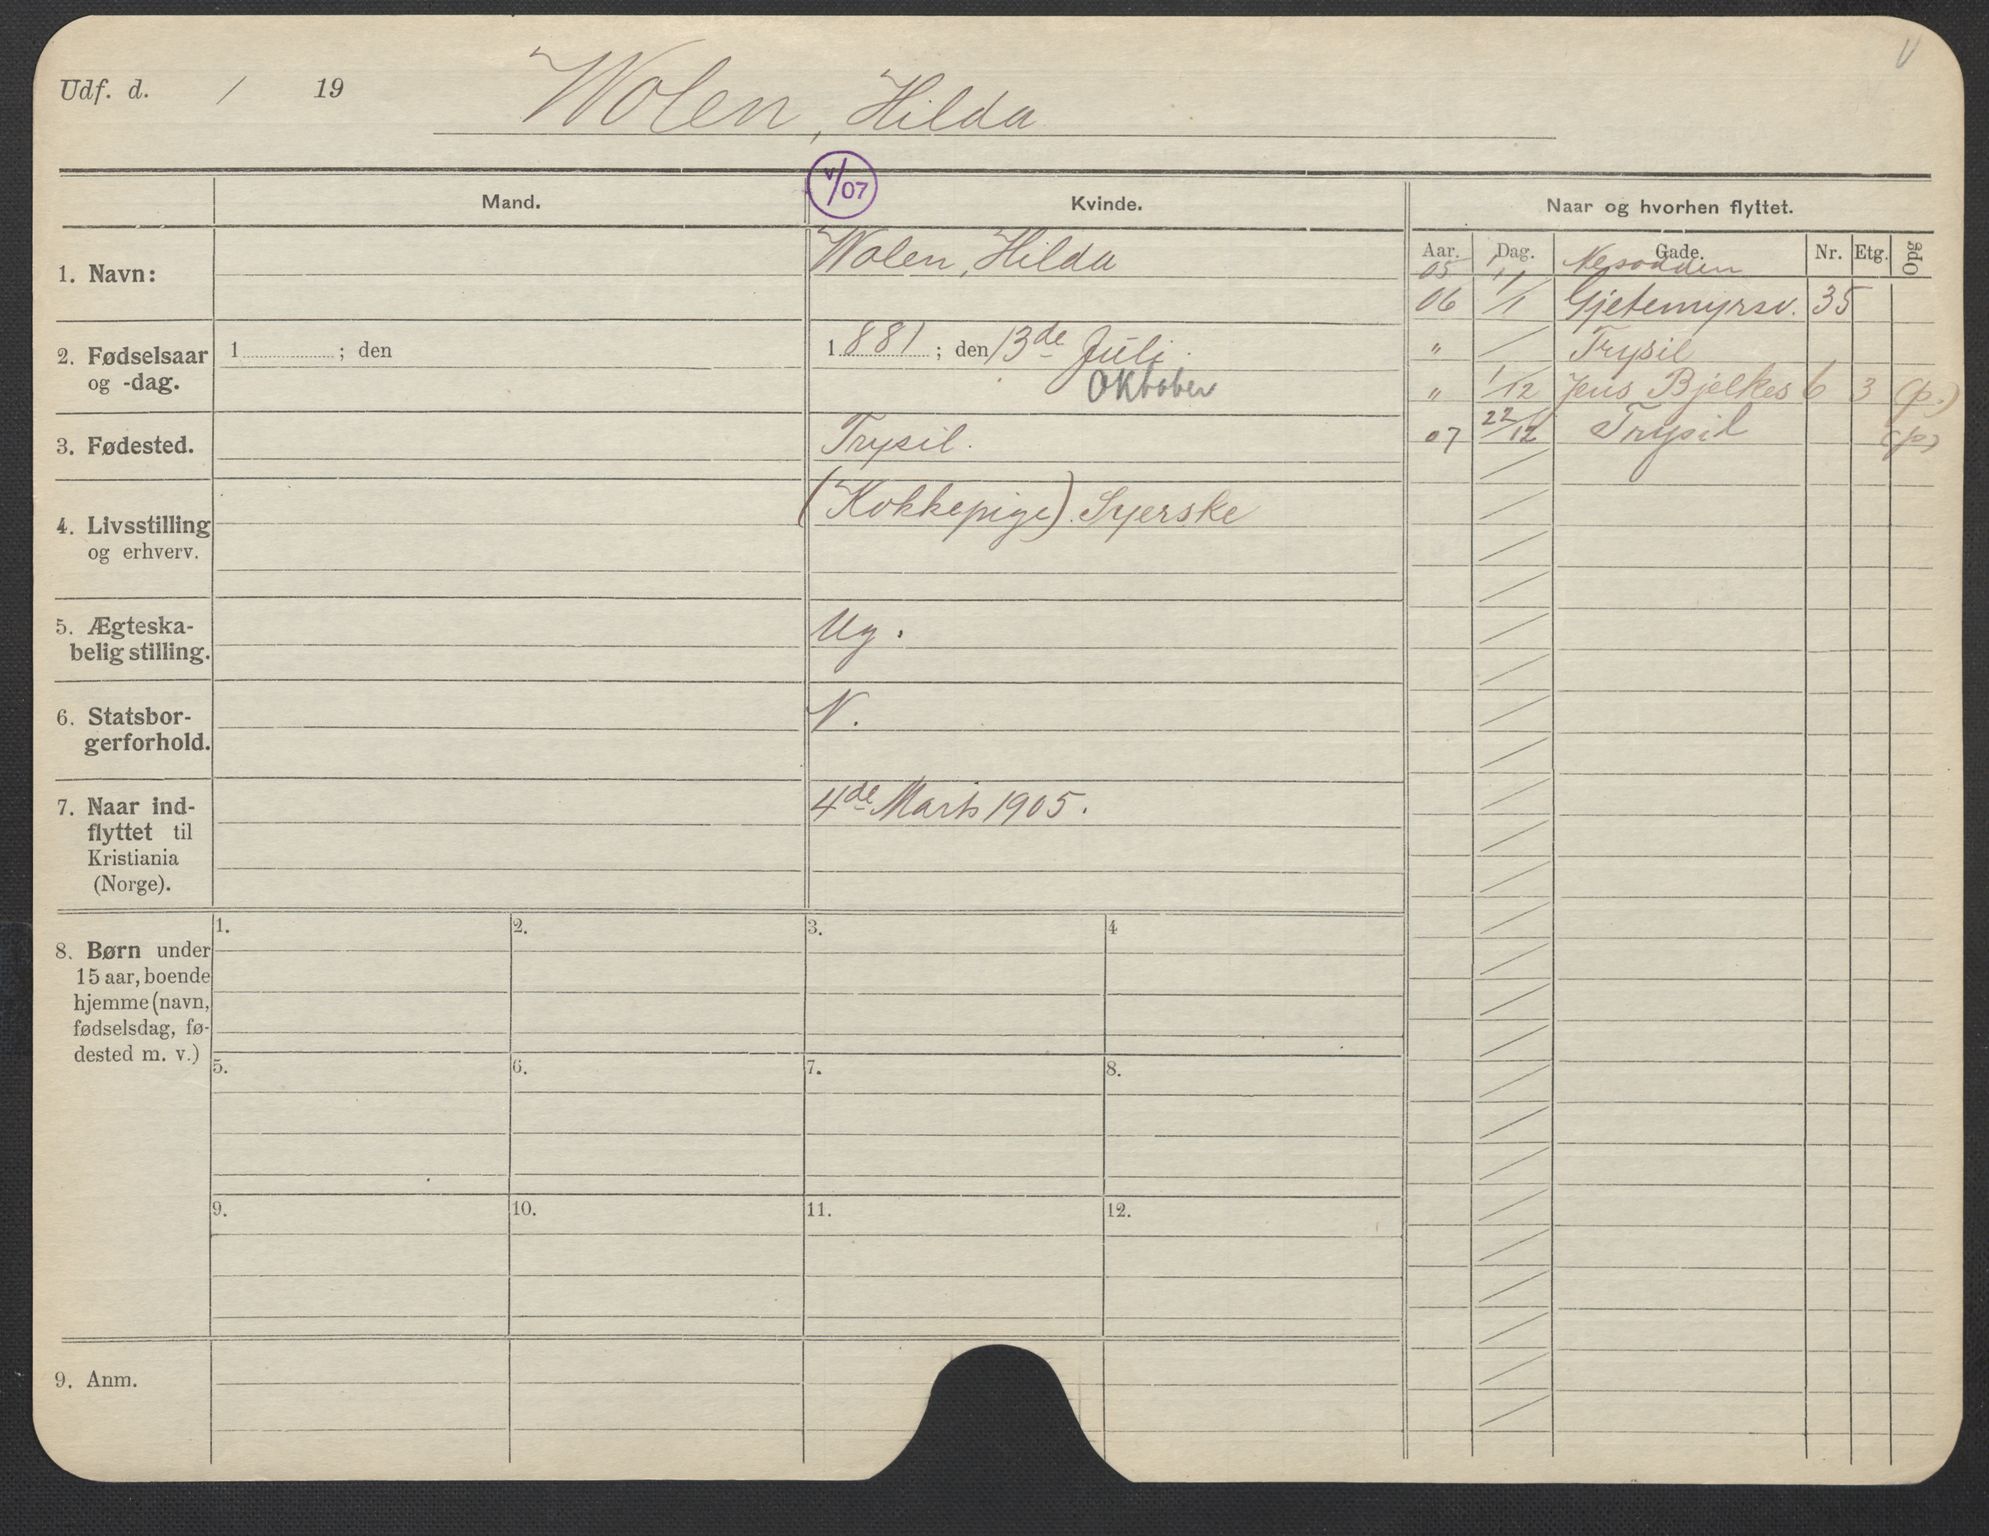 Udf. d. / 19
Wolen, Hilda
V/07
Mand.
Kvinde.
Naar og hvorhen flyttet.
Aar. Dag. Gade. Nr. Etg. Opg
1. Navn:
Wolen, Hilda
05 1/11 Nesodden
06 1/1 Gjetemyrsv. 35
2. Fødselsaar
og -dag.
1 ; den
1881 ; den 13de Juli
Oktober
" / Trysil
" 1/12 Jens Bjelkes 6 3 (p.)
07 22/12 Trysil (p)
3. Fødested.
Trysil.
4. Livsstilling
og erhverv.
(Kokkepige) Syerske
5. Ægteska-
belig stilling.
Ug.
6. Statsbor-
gerforhold.
N.
7. Naar ind-
flyttet til
Kristiania
(Norge).
4de Marts 1905.
8. Børn under
15 aar, boende
hjemme (navn,
fødselsdag, fø-
dested m. v.)
1. 2. 3. 4
5. 6. 7. 8.
9. 10. 11. 12.
9. Anm.